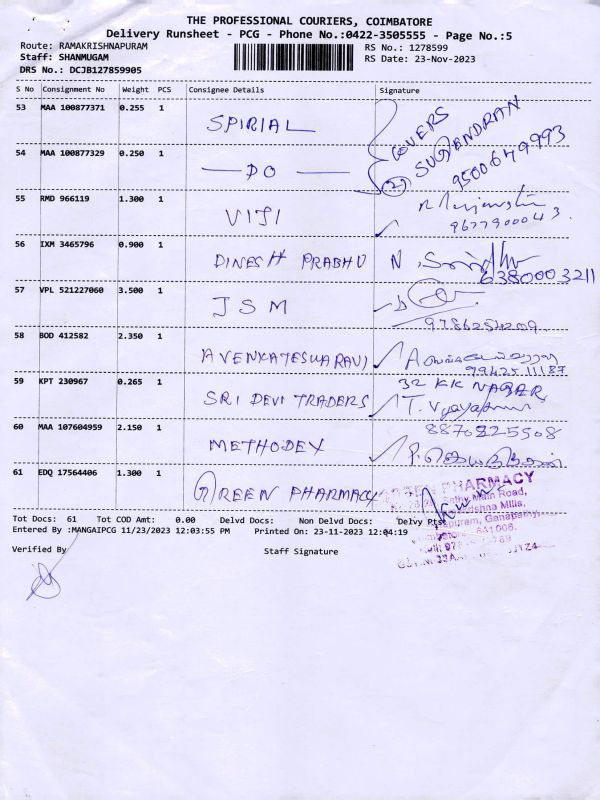 THE PROFESSIONAL COURIERS, COIMBATORE
Delivery Runsheet - PCG - Phone No.:0422-3505555 - Page No.:5
Route: RAMAKRISHNAPURAM RS No.: 1278599
Staff: SHANMUGAM RS Date: 23-Nov-2023
DRS No.: DCJB127859905
S No Consignment No Weight PCS Consignee Details Signature
53 MAA 100877371 0.255 1 SPIRIAL COVERS
54 MAA 100877329 0.250 1 — DO — (2) SUGENDRAN
9500649993
55 RMD 966119 1.300 1 VIJI
9677900043
56 IXM 3465796 0.900 1 DINESH PRABHU N.
6380003211
57 VPL 521227060 3.500 1 JSM
9786254209
58 BOD 412582 2.350 1 A VENKATESWARAVI
9942511187
59 KPT 230967 0.265 1 SRI DEVI TRADERS 32 KK NAGAR
T.
60 MAA 107604959 2.150 1 METHODEX 8870225508
61 EDQ 17564406 1.300 1 GREEN PHARMACY
GREEN PHARMACY
Main Road,
Mills,
Ganapathy,
641006.
Tot Docs: 61 Tot COD Amt: 0.00 Delvd Docs: Non Delvd Docs: Delvy Ptst
Entered By :MANGAIPCG 11/23/2023 12:03:55 PM Printed On: 23-11-2023 12:04:19
Verified By Staff Signature